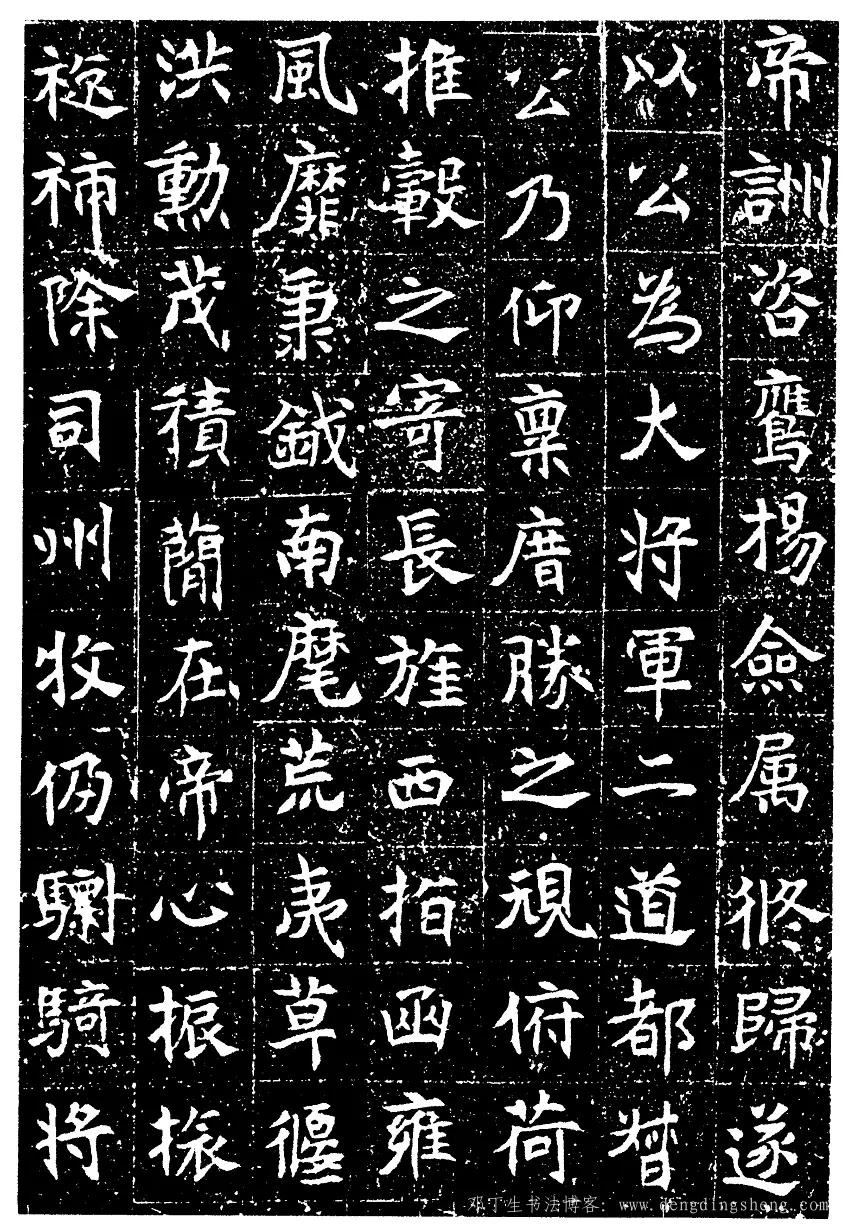 帝詶咨鷹揚僉属攸歸遂
以公為大将軍二道都督
公乃仰稟庿勝之規俯荷
推轂之寄長旌西指函雍
風靡秉鉞南麾荒夷草偃
洪勳茂積簡在帝心振振
袨祔除司州牧仍驃騎将
邓丁生书法博客: www.dengdingsheng.com